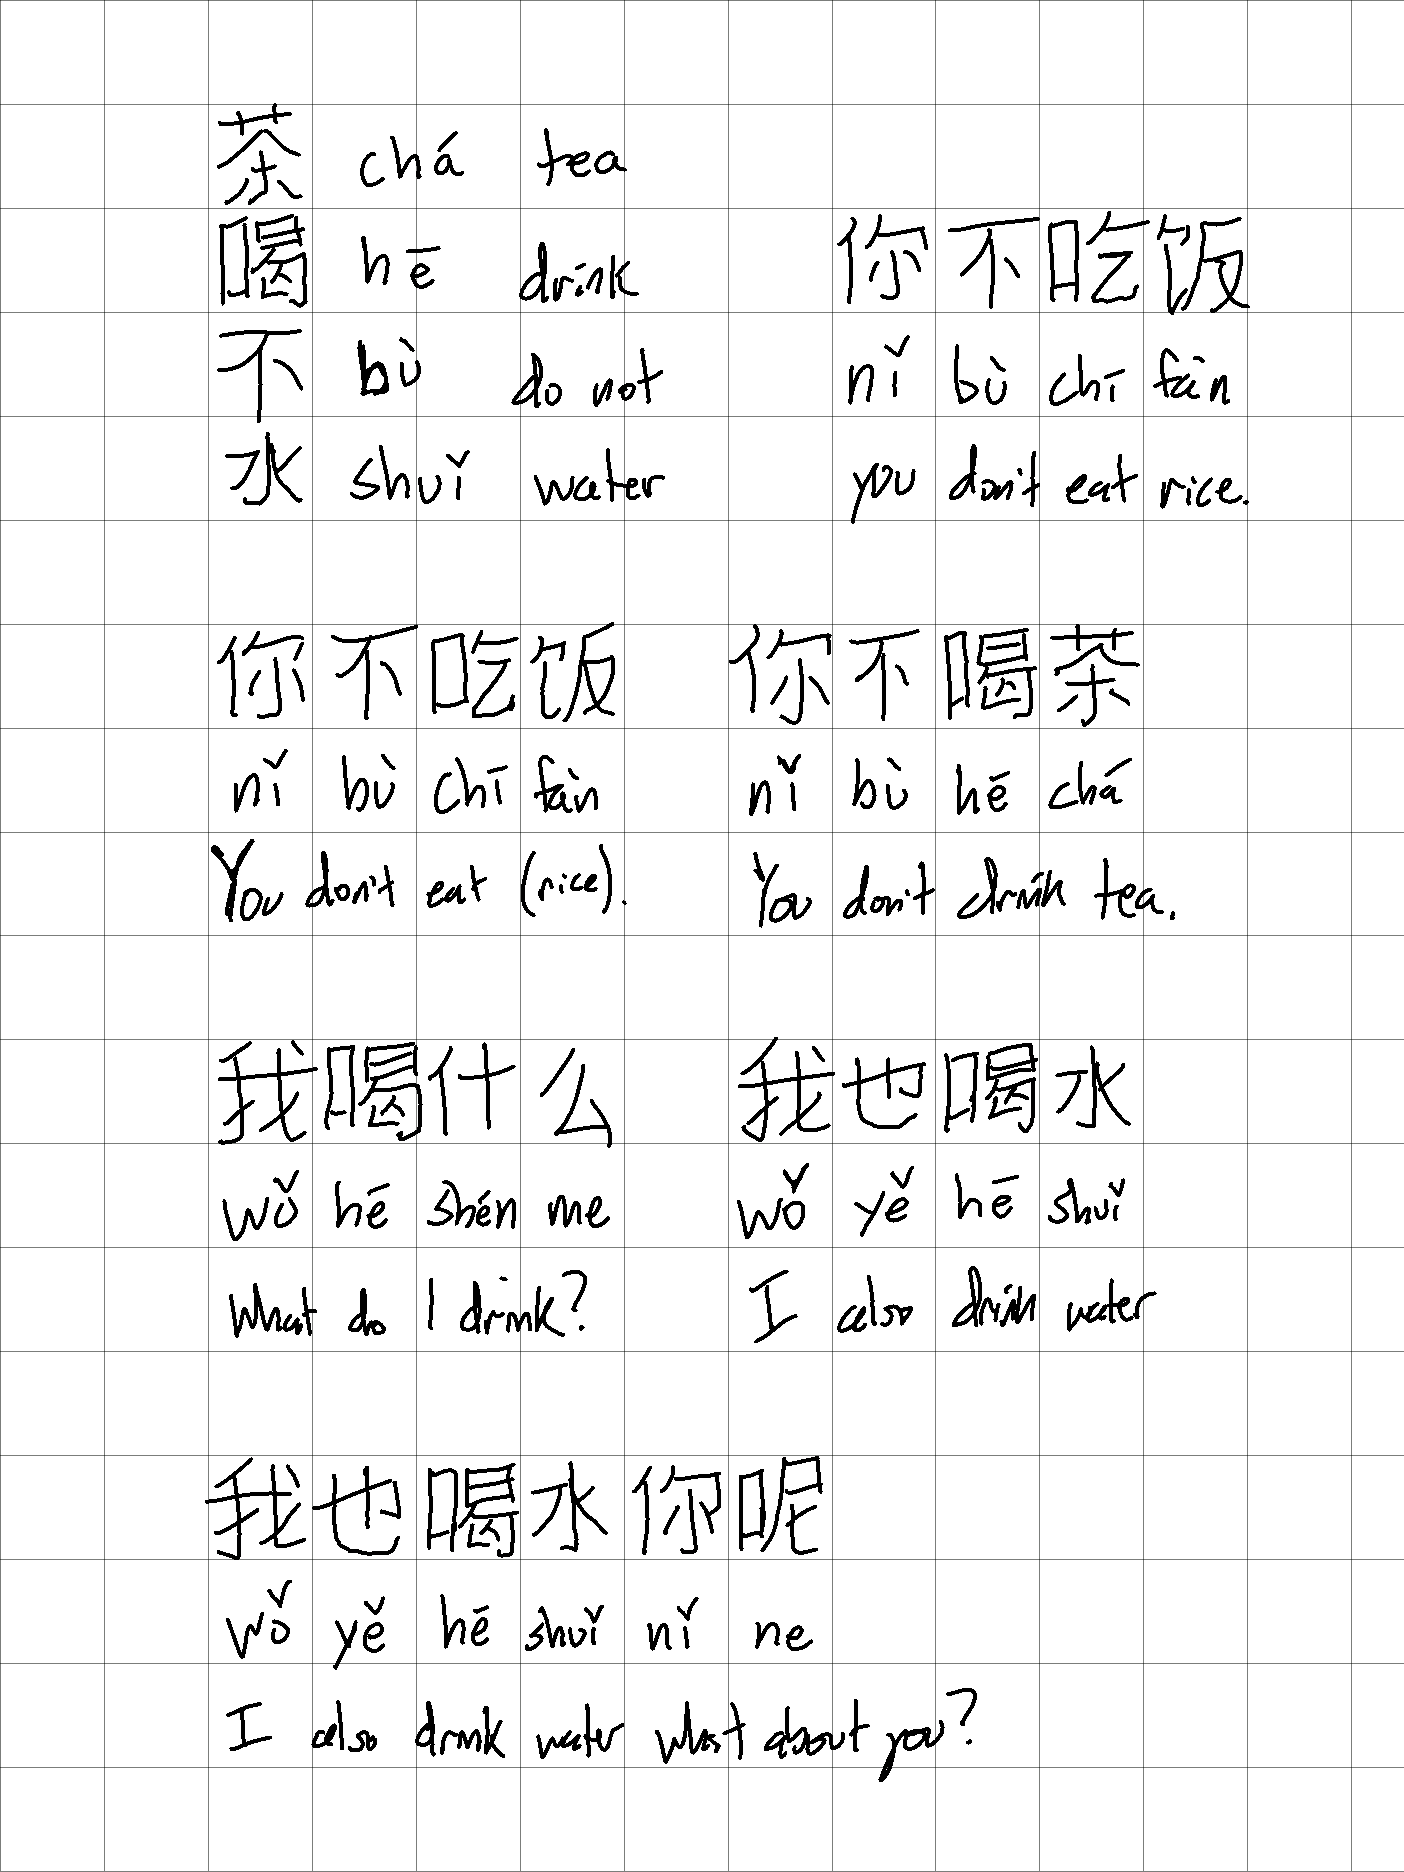 茶 chá tea
喝 hē drink
不 bù do not
水 shuǐ water
你不吃饭
nǐ bù chī fàn
you don't eat rice.
你不吃饭
nǐ bù chī fàn
You don't eat (rice).
你不喝茶
nǐ bù hē chá
You don't drink tea.
我喝什么
wǒ hē shén me
What do I drink?
我也喝水
wǒ yě hē shuǐ
I also drink water
我也喝水你呢
wǒ yě hē shuǐ nǐ ne
I also drink water what about you?